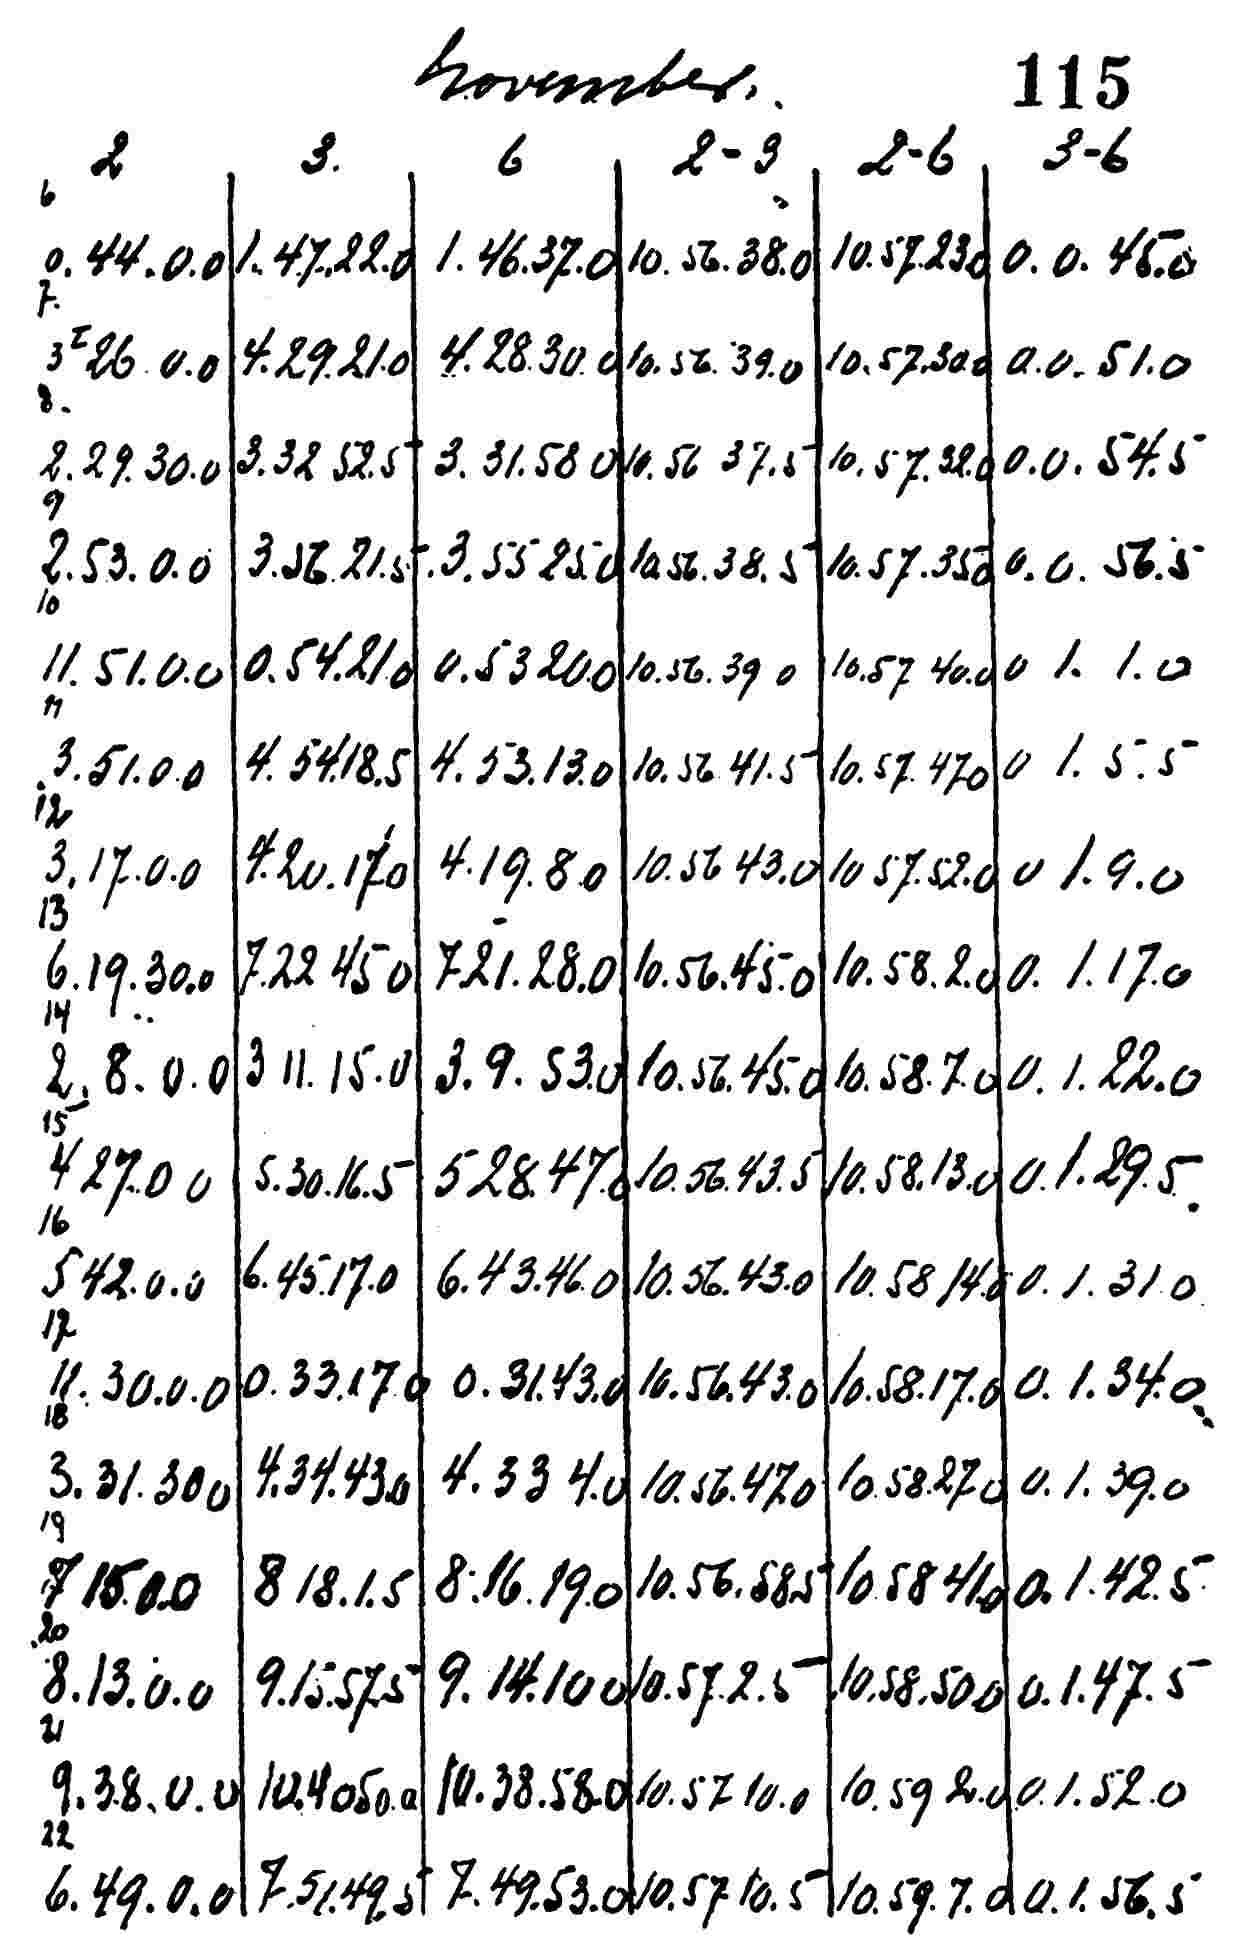 November. 115
2 3. 6 2-3 2-6 3-6
6
0.44.0.0 1.47.22.0 1.46.37.0 10.56.38.0 10.57.23.0 0.0.45.0
7.
3 26.0.0 4.29.21.0 4.28.30.0 10.56.39.0 10.57.30.0 0.0.51.0
8.
2.29.30.0 3.32 52.5 3.31.58 0 10.56 37.5 10.57.32.0 0.0.54.5
9
2.53.0.0 3.56.21.5 3.55 25.0 10.56.38.5 10.57.35.0 0.0.56.5
10
11.51.0.0 0.54.21.0 0.53 20.0 10.56.39 0 10.57 40.0 0 1.1.0
11
3.51.0.0 4.54.18.5 4.53.13.0 10.56 41.5 10.57.47.0 0 1.5.5
12
3.17.0.0 4.20.17.0 4.19.8.0 10.56 43.0 10 57.52.0 0 1.9.0
13
6.19.30.0 7.22 45 0 7.21.28.0 10.56.45.0 10.58.2.0 0.1.17.0
14
2.8.0.0 3 11.15.0 3.9.53.0 10.56.45.0 10.58.7.0 0.1.22.0
15
4 27.0 0 5.30.16.5 5 28.47.0 10.56.43.5 10.58.13.0 0.1.29.5
16
5 42.0.0 6.45.17.0 6.43.46.0 10.56.43.0 10.58 14.0 0.1.31 0
17
11.30.0.0 0.33.17.0 0.31.43.0 10.56.43.0 10.58.17.0 0.1.34.0
18
3.31.30 0 4.34.43.0 4.33 4.0 10.56.47.0 10.58.27.0 0.1.39.0
19
7 15.0.0 8 18.1.5 8.16.19.0 10.56.58.5 10.58 41.0 0.1.42.5
20
8.13.0.0 9.15.57.5 9.14.10 0 10.57.2.5 10.58.50.0 0.1.47.5
21
9.38.0.0 10.40 50.0 10.38.58.0 10.57 10.0 10.59 2.0 0.1.52.0
22
6.49.0.0 7.51.49.5 7.49.53.0 10.57 10.5 10.59.7.0 0.1.56.5